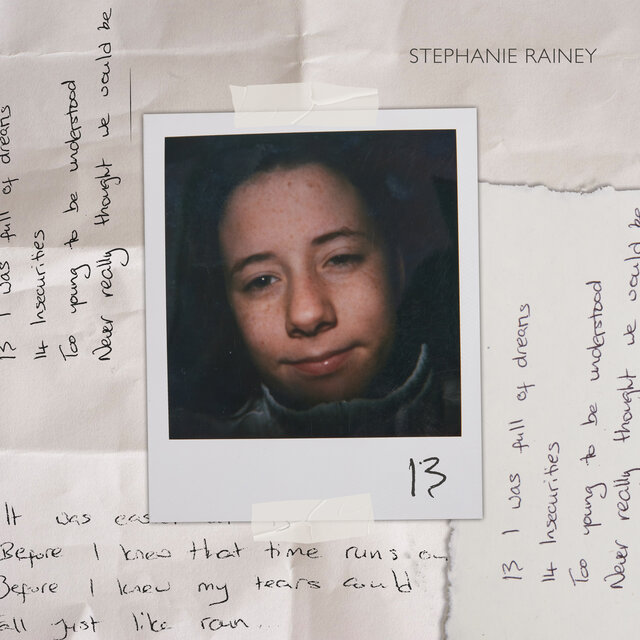 STEPHANIE RAINEY
13 I was full of dreams
14 Insecurities
Too young to be understood
Never really thought we would be
13
It was
Before I knew that time runs
Before I knew my tears could
fall just like rain...
13 I was full of dreams
14 Insecurities
Too young to be understood
Never really thought we would be